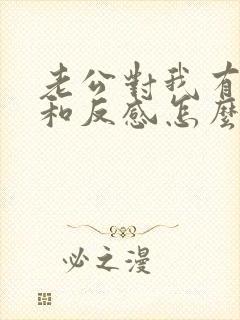 老公對我有
和反感怎麼
必之漫